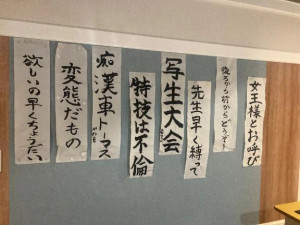 女王様とお呼び
後ろから前からどうぞ
先生早く縛って
写生大会
特技は不倫
痴漢車トーマス
変態だもの
欲しいの早くちょうたい